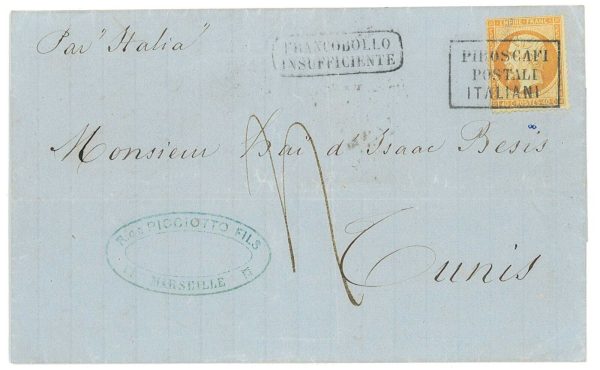 Par "Italia"
FRANCOBOLLO
INSUFFICIENTE
EMPIRE FRANC
PIROSCAFI
POSTALI
ITALIANI
Monsieur Haï d'Isaac Besis
Tunis
PICCIOTTO FILS
MARSEILLE